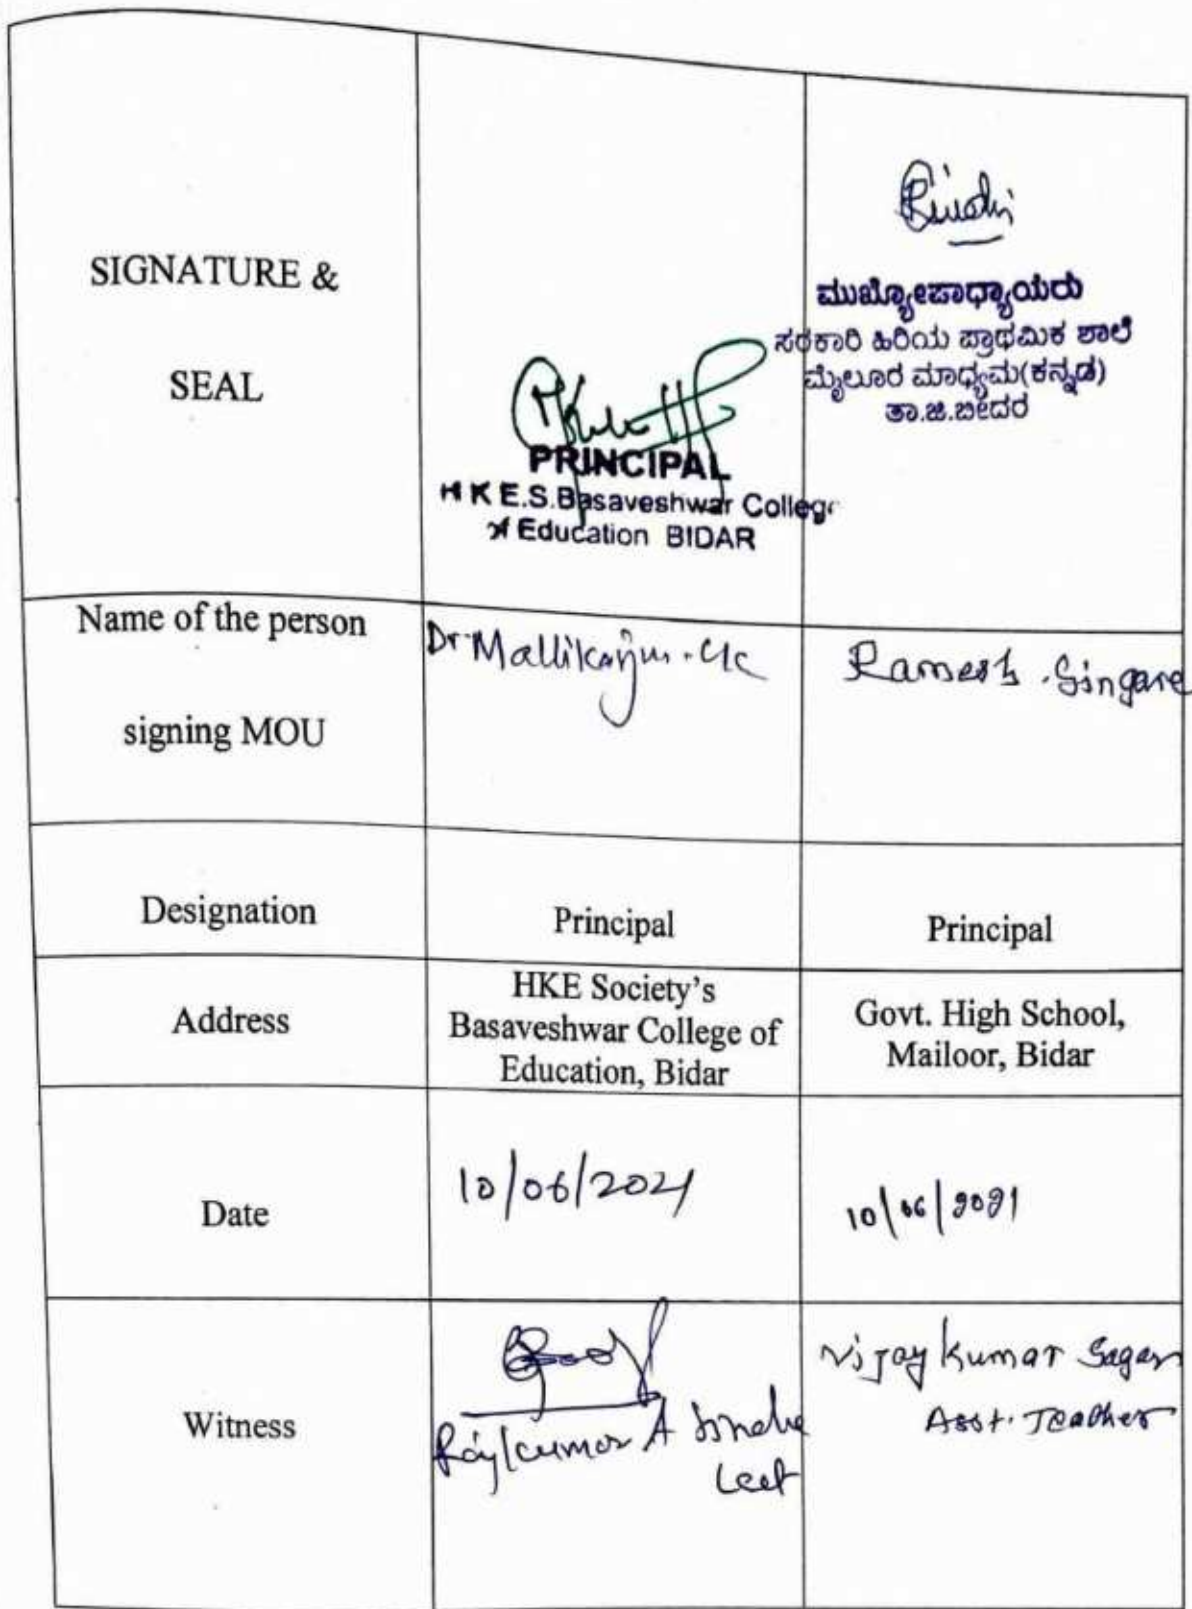 SIGNATURE &
SEAL
PRINCIPAL
H K E.S.Basaveshwar College
of Education BIDAR
ಮುಖ್ಯೋಪಾಧ್ಯಾಯರು
ಸರಕಾರಿ ಹಿರಿಯ ಪ್ರಾಥಮಿಕ ಶಾಲೆ
ಮೈಲೂರ ಮಾಧ್ಯಮ(ಕನ್ನಡ)
ತಾ.ಜಿ.ಬೀದರ
Name of the person
signing MOU
Dr Mallikarjun
Ramesh Singare
Designation
Principal
Principal
Address
HKE Society's
Basaveshwar College of
Education, Bidar
Govt. High School,
Mailoor, Bidar
Date
10/06/2021
10/06/2021
Witness
Rajkumar A
Vijay Kumar Sagar
Asst. Teacher